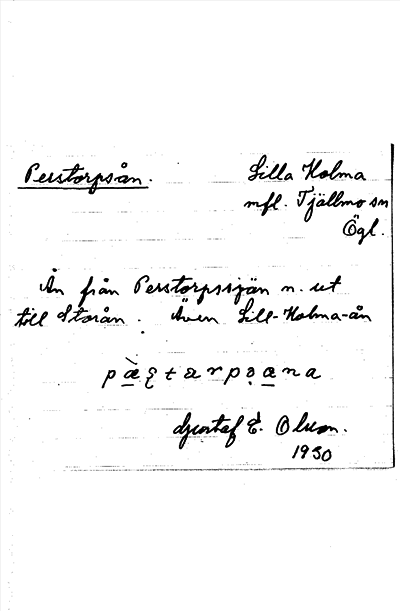 Perstorpsån.
Lilla Holma
mfl. Tjällmo sn
Ögl.
Ån från Perstorpssjön n. ut
till Storån. Även Lill-Holma-ån
Gustaf E. Olson.
1930